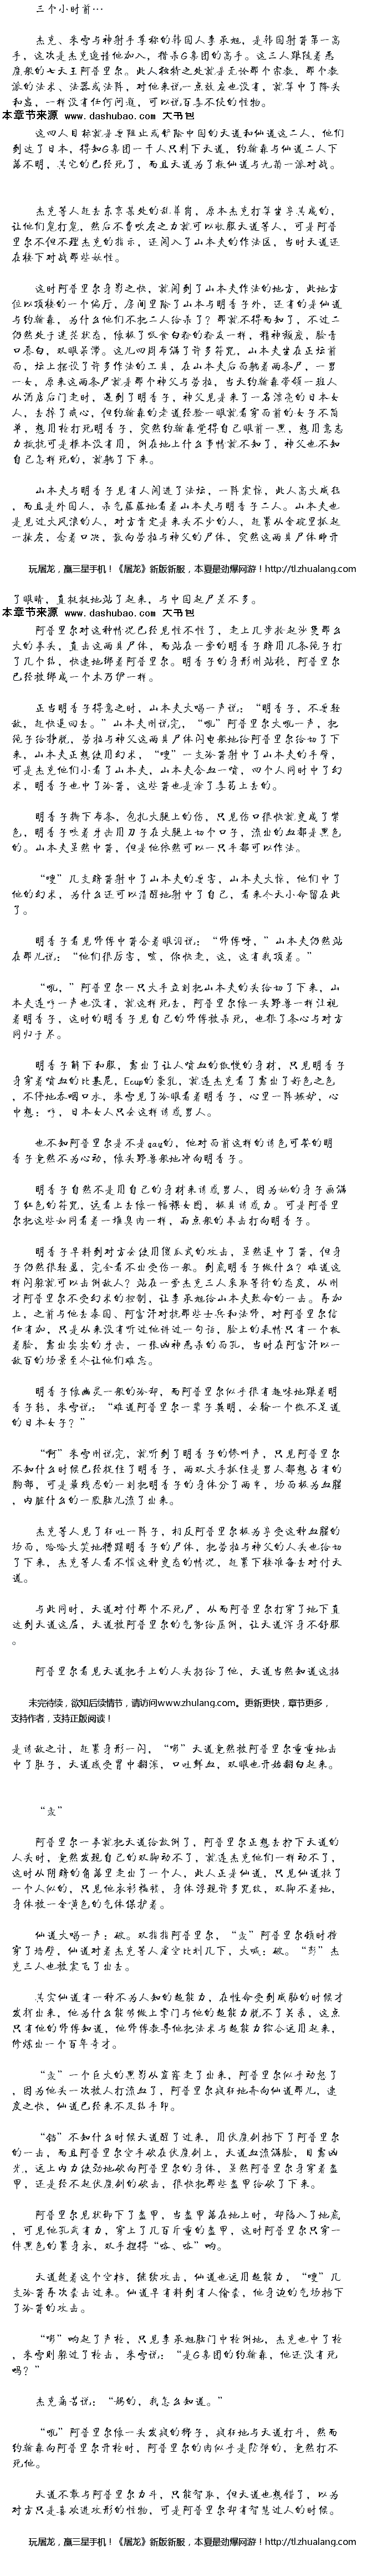 三个小时前…
杰克、朱雪与神射手尊称的韩国人李承旭，是韩国射箭第一高
手，这次是杰克邀请他加入，楷杀G集团的高手。这三人跟随着恶
魔般的七大王阿普里尔。此人独特之处就是无论那个宗教，那个教
派的法术、法器或法阵，对他来说一点效应也没有，就算中了降头
和蛊，一样没有任何问题，可以说百毒不侵的怪物。
本章节来源 www.dashubao.com 大书包
这四人目标就是要阻止或铲除中国的天道和仙道这二人，他们
到达了日本，得知G集团一千人只剩下天道，约翰森与仙道二人下
落不明，其它的已经死了，而且天道为了救仙道与九菊一派对战。
杰克等人赶去东京某处的乱葬岗，原本杰克打算坐享其成的，
让他们鬼打鬼，然后不费吹灰之力就可以收服天道等人，可是阿普
里尔不但不理杰克的指示，还闯入了山本夫的作法区，当时天道还
在楼下对战那些妖性。
这时阿普里尔身影之快，就闯到了山本夫作法的地方，此地方
但以顶楼的一个偏厅，房间里除了山本与明香子外，还有的是仙道
与约翰森，为什么他们不把二人给杀了？那就不得而知了，不过二
仍然处于迷茫状态，像极了吸食白粉的粉友一样，精神颓废，脸青
口唇白，双眼呆滞。这儿四周布满了许多符咒，山本夫坐在正坛前
面，坛上摆设了许多作法的工具，在山本夫后面躺着两条尸，一男
一女，原来这两条尸就是那个神父与劳拉，当天约翰森带领一班人
从酒店后门走时，遇到了明香子，神父见是来了一名漂亮的日本女
人，去掉了戒心，但约翰森的老道经验一眼就看穿面前的女子不简
单，想用枪打死明香子，突然约翰森觉得自己眼前一黑，想用意志
力抵抗可是根本没有用，倒在地上什么事情就不知了，神父也不知
自己怎样死的，就躺了下来。
山本夫与明香子见有人闯进了法坛，一阵震惊，此人高大威猛
，而且是外国人，杀气腾腾地看着山本夫与明香子二人。山本夫也
是见过大风浪的人，对方肯定是来头不少的人，赶紧从金碗里抓起
一抹灰，念着口决，散向劳拉与神父的尸体，突然这两具尸体睁开
玩屠龙，赢三星手机！《屠龙》新版新服，本夏最劲爆网游！http://tl.zhulang.com
了眼睛，直挺挺地站了起来，与中国起尸差不多。
本章节来源 www.dashubao.com 大书包
阿普里尔对这种情况已经见怪不怪了，走上几步抡起沙煲那么
大的拳头，直击这两具尸体，而站在一旁的明香子睁用几条绳子打
了几个结，快速地绑着阿普里尔。明香子的身形刚站稳，阿普里尔
已经被绑成一个木乃伊一样。
正当明香子得意之时，山本夫大喝一声说：“明香子，不要轻
敌，赶快退回去。”山本夫刚说完，“吼”阿普里尔大吼一声，把
绳子给挣脱，劳拉与神父这两具尸体闪电般地给阿普里尔给切了下
来，山本夫正想使用幻术，“嗖”一支冷箭射中了山本夫的手臂，
可是杰克他们小看了山本夫，山本夫含血一喷，四个人同时中了幻
术，明香子也中了冷箭，这些箭也是涂了毒药上去的。
明香子撕下布条，包扎大腿上的伤，只见伤口很快就变成了紫
色，明香子咬着牙齿用刀子在大腿上切个口子，流出的血都是黑色
的。山本夫虽然中箭，但是他依然可以一只手都可以作法。
“嗖”几支睁箭射中了山本夫的要害，山本夫大惊，他们中了
他的幻术，为什么还可以清醒地射中了自己，看来今天小命留在此
了。
明香子看见师傅中箭含着眼泪说：“师傅呀，”山本夫仍然站
在那儿说：“他们很厉害，咳，你快走，这，这有我顶着。”
“吼，”阿普里尔一只大手立刻把山本夫的头给切了下来，山
本夫连哼一声也没有，就这样死去，阿普里尔像一头野兽一样注视
着明香子，这时的明香子见自己的师傅被杀死，也抱了条心与对方
同归于尽。
明香子解下和服，露出了让人喷血的傲慢的身材，只见明香子
身穿着喷血的比基尼，Ecup的豪乳，就连杰克看了露出了好色之色
，不停地吞咽口水，朱雪见了冷眼看着明香子，心里一阵嫉妒，心
中想：哼，日本女人只会这样诱惑男人。
也不知阿普里尔是不是gay的，他对面前这样的诱色可餐的明
香子竟然不为心动，像头野兽般地冲向明香子。
明香子自然不是用自己的身材来诱惑男人，因为她的身子画满
了红色的符咒，远看上去像一幅裸女图，极具诱惑力。可是阿普里
尔把这些如同看着一堆臭肉一样，雨点般的拳击打向明香子。
明香子早料到对方会使用傻瓜式的攻击，虽然退中了箭，但身
子仍然很轻盈，完全看不出受伤一般。到底明香子做什么？难道这
样闪躲就可以击倒敌人？站在一旁杰克三人采取等待的态度，从刚
才阿普里尔不受幻术的控制，让李承旭给山本夫致命的一击。再加
上，之前与他去泰国、阿富汗对抗那些士兵和法师，对阿普里尔信
任有加，只是从来没有听过他讲过一句话，脸上的表情只有一个板
着脸，露出尖尖的牙齿，一张凶神恶杀的面孔，当时在阿富汗以一
敌百的场景至今让他们难忘。
明香子像幽灵一般的冷却，而阿普里尔似乎很有趣味地跟着明
香子转，朱雪说：“难道阿普里尔一辈子英明，会输一个微不足道
的日本女子？”
“啊”朱雪刚说完，就听到了明香子的惨叫声，只见阿普里尔
不知什么时候已经捉住了明香子，两双大手抓住是男人都想占有的
胸部，可是最残忍的一刻把明香子的身体分了两半，场面极为血腥
，内脏什么的一股脑儿流了出来。
杰克等人见了狂吐一阵子，相反阿普里尔极为享受这种血腥的
场面，哈哈大笑地糟蹋明香子的尸体，把劳拉与神父的人头也给切
了下来，杰克等人看不惯这种变态的情况，赶紧下楼准备去对付天
道。
与此同时，天道对付那个不死尸，从而阿普里尔打穿了地下直
达到天道这层，天道被阿普里尔的气势给压倒，让天道浑身不舒服
。
阿普里尔看见天道把手上的人头扔给了他，天道当然知道这招
未完待续，欲知后续情节，请访问www.zhulang.com。更新更快，章节更多，
支持作者，支持正版阅读！
是诱敌之计，赶紧身形一闪，“嘭”天道竟然被阿普里尔重重地击
中了肚子，天道感受胃中翻滚，口吐鲜血，双眼也开始翻白起来。
“轰”
阿普里尔一拳就把天道给放倒了，阿普里尔正想去拧下天道的
人头时，竟然发现自己的双脚动不了，就连杰克他们一样动不了，
这时从阴暗的角落里走出了一个人，此人正是仙道，只见仙道换了
一个人似的，只见他衣衫褴褛，身体浮现许多咒纹，双脚不着地，
身体被一含黄色的气体保护着。
仙道大喝一声：破。双指指阿普里尔，“轰”阿普里尔顿时撞
穿了墙壁，仙道对着杰克等人虚空比划几下，大喊：破。“彭”杰
克三人也被震飞了出去。
其实仙道有一种不为人知的超能力，在性命受到威胁的时候才
发挥出来，他为什么能够做上掌门与他的超能力脱不了关系，这点
只有他的师傅知道，他师傅教导他把法术与超能力综合运用起来，
修炼出一个百年奇才。
“轰”一个巨大的黑影从窟窿走了出来，阿普里尔似乎动怒了
，因为他头一次被人打流血了，阿普里尔疯狂地奔向仙道那儿，速
度之快，仙道已经来不及结手印。
“铛”不知什么时候天道醒了过来，用伏魔剑挡下了阿普里尔
的一击，而且阿普里尔空手砍在伏魔剑上，天道血流满脸，目露凶
光，运上内力使劲地砍向阿普里尔的身体，虽然阿普里尔身穿着盔
甲，还是经不起伏魔剑的砍击，很快把那些盔甲给砍了下来。
阿普里尔见状卸下了盔甲，当盔甲落在地上时，却陷入了地底
，可见他孔武有力，穿上了几百斤重的盔甲，这时阿普里尔只穿一
件黑色的紧身衣，双手捏得“咯、咯”响。
天道趁着这个空档，继续攻击，仙道也运用超能力，“嗖”几
支冷箭再次袭击过来。仙道早有料到有人偷袭，他身边的气场挡下
了冷箭的攻击。
“嘭”响起了声枪，只见李承旭脑门中枪倒地，杰克也中了枪
，朱雪则躲过了枪击，朱雪说：“是G集团的约翰森，他还没有死
吗？”
杰克痛苦说：“妈的，我怎么知道。”
“吼”阿普里尔像一头发疯的狮子，疯狂地与天道打斗，然而
约翰森向阿普里尔开枪时，阿普里尔的肉似乎是防弹的，竟然打不
死他。
天道不敢与阿普里尔力斗，只能智取，但天道也想错了，以为
对方只是喜欢进攻形的怪物，可是阿普里尔却有智慧过人的时候。
玩屠龙，赢三星手机！《屠龙》新版新服，本夏最劲爆网游！http://tl.zhulang.com